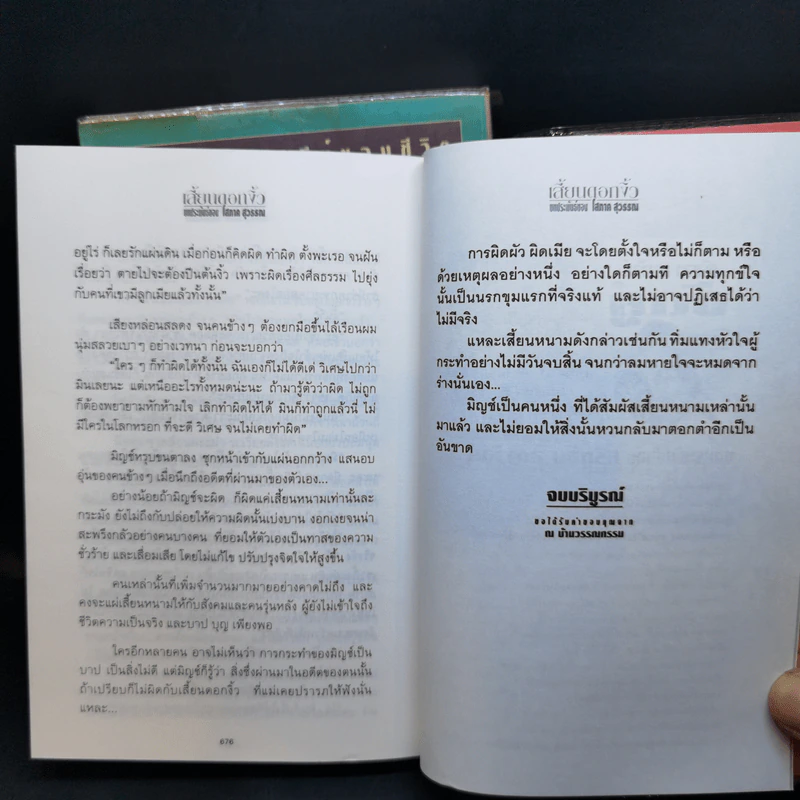 เสี้ยนดอกงิ้ว
บทประพันธ์ของ โสภาค สุวรรณ
อยู่ไร่ ก็เลยรักแผ่นดิน เมื่อก่อนก็คิดผิด ทำผิด ตั้งพะเรอ จนฝัน
เรื่อยว่า ตายไปจะต้องปีนต้นงิ้ว เพราะผิดเรื่องศีลธรรม ไปยุ่ง
กับคนที่เขามีลูกเมียแล้วทั้งนั้น”
เสียงหล่อนสลดลง จนคนข้างๆ ต้องยกมือขึ้นไล้เรือนผม
นุ่มสลวยเบาๆ อย่างเวทนา ก่อนจะบอกว่า
“ใคร ๆ ก็ทำผิดได้ทั้งนั้น ฉันเองก็ไม่ได้ดีเด่ วิเศษไปกว่า
มินเลยนะ แต่เหนืออะไรทั้งหมดน่ะนะ ถ้ามารู้ตัวว่าผิด ไม่ถูก
ก็ต้องพยายามหักห้ามใจ เลิกทำผิดให้ได้ มินก็ทำถูกแล้วนี่ ไม่
มีใครในโลกหรอก ที่จะดี วิเศษ จนไม่เคยทำผิด”
มิญช์หรุบขนตาลง ซุกหน้าเข้ากับแผ่นอกกว้าง แสนอบ
อุ่นของคนข้างๆ เมื่อนึกถึงอดีตที่ผ่านมาของตัวเอง...
อย่างน้อยถ้ามิญช์จะผิด ก็ผิดแค่เสี้ยนหนามเท่านั้นละ
กระมัง ยังไม่ถึงกับปล่อยให้ความผิดนั้นเบ่งบาน งอกเงยจนน่า
สะพรึงกลัวอย่างคนบางคน ที่ยอมให้ตัวเองเป็นทาสของความ
ชั่วร้าย และเสื่อมเสีย โดยไม่แก้ไข ปรับปรุงจิตใจให้สูงขึ้น
คนเหล่านั้นที่เพิ่มจำนวนมากมายอย่างคาดไม่ถึง และ
คงจะแผ่เสี้ยนหนามให้กับสังคมและคนรุ่นหลัง ผู้ยังไม่เข้าใจถึง
ชีวิตความเป็นจริง และบาป บุญ เพียงพอ
ใครอีกหลายคน อาจไม่เห็นว่า การกระทำของมิญช์เป็น
บาป เป็นสิ่งไม่ดี แต่มิญช์ก็รู้ว่า สิ่งซึ่งผ่านมาในอดีตของตนนั้น
ถ้าเปรียบก็ไม่ผิดกับเสี้ยนดอกงิ้ว ที่แม่เคยปรารภให้ฟังนั่น
แหละ...
676
เสี้ยนดอกงิ้ว
บทประพันธ์ของ โสภาค สุวรรณ
การผิดผัว ผิดเมีย จะโดยตั้งใจหรือไม่ก็ตาม หรือ
ด้วยเหตุผลอย่างหนึ่ง อย่างใดก็ตามที ความทุกข์ใจ
นั้นเป็นนรกขุมแรกที่จริงแท้ และไม่อาจปฏิเสธได้ว่า
ไม่มีจริง
แหละเสี้ยนหนามดังกล่าวเช่นกัน ทิ่มแทงหัวใจผู้
กระทำอย่างไม่มีวันจบสิ้น จนกว่าลมหายใจจะหมดจาก
ร่างนั่นเอง...
มิญช์เป็นคนหนึ่ง ที่ได้สัมผัสเสี้ยนหนามเหล่านั้น
มาแล้ว และไม่ยอมให้สิ่งนั้นหวนกลับมาตอกตำอีกเป็น
อันขาด
จบบริบูรณ์
ขอได้รับคำขอบคุณจาก
ณ บ้านวรรณกรรม